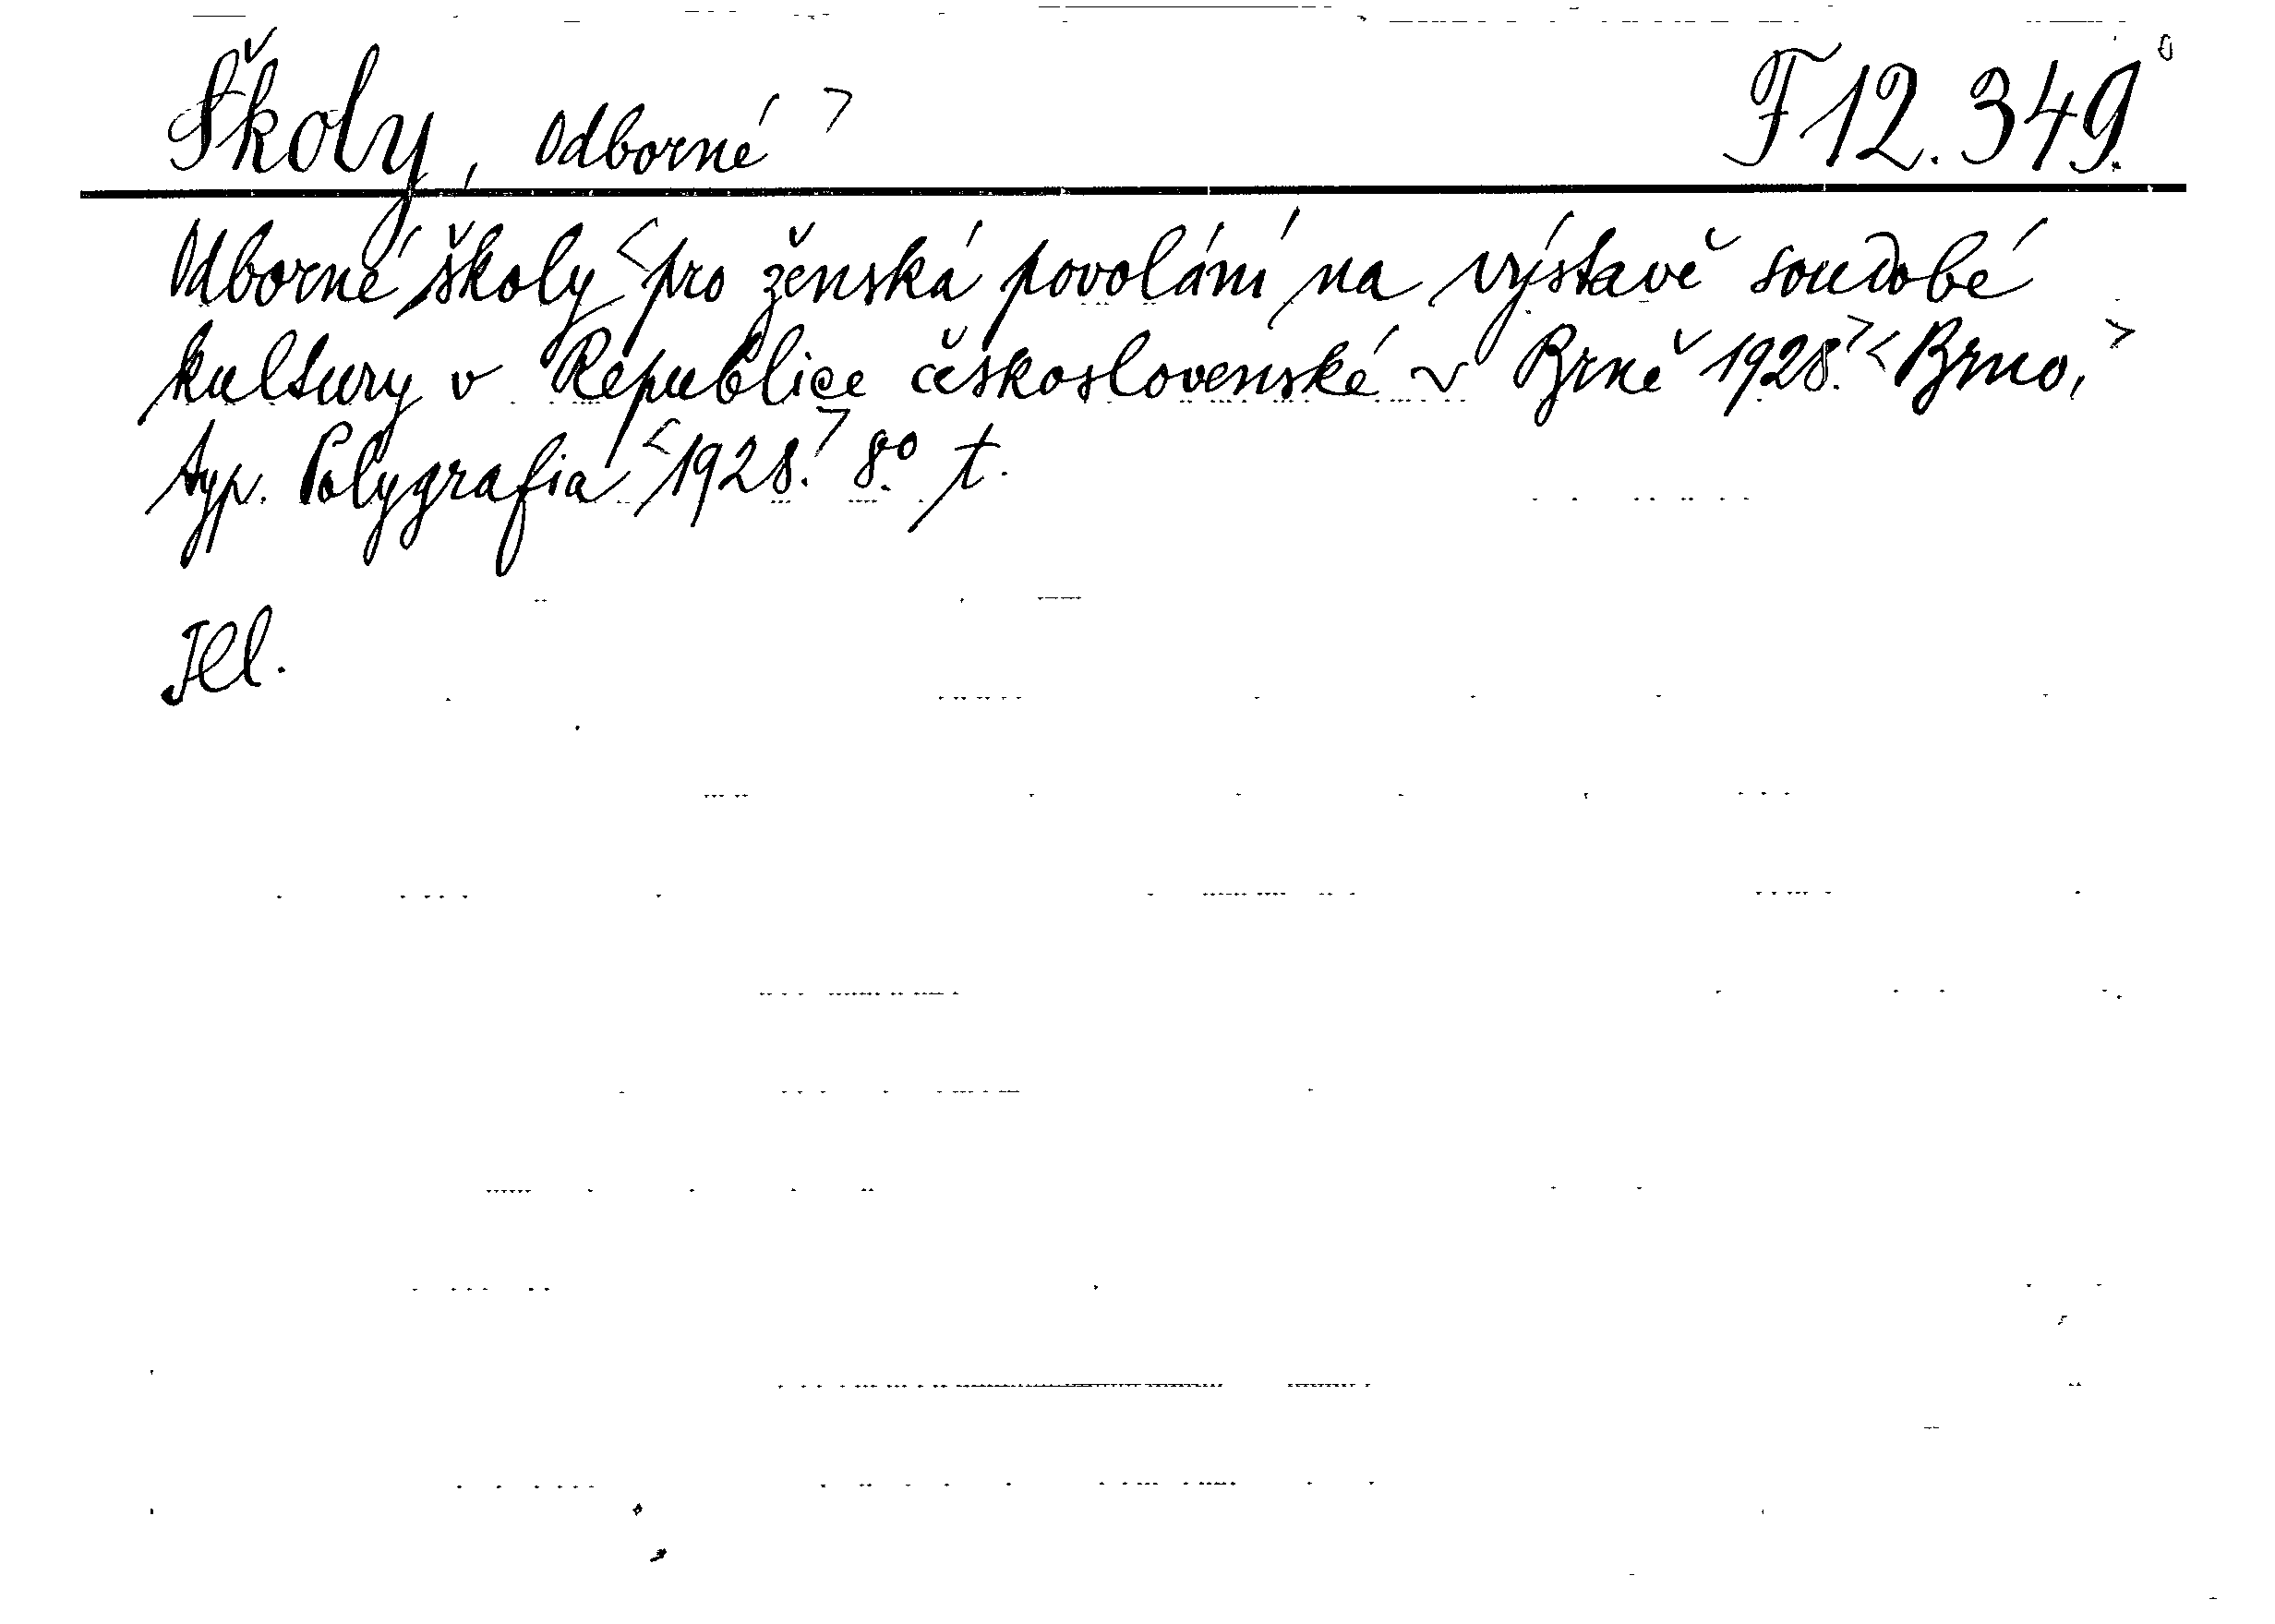 Školy, odborné > F 12.349.
Odborné školy < pro ženská povolání na výstavě soudobé
kultury v Republice československé v Brně 1928. > < Brno, >
typ. Polygrafia < 1928. > 8.° t.